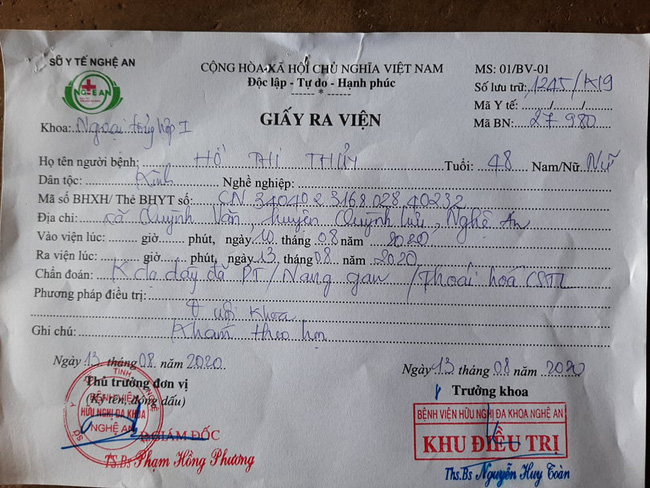 SỞ Y TẾ NGHỆ AN
CỘNG HÒA XÃ HỘI CHỦ NGHĨA VIỆT NAM
Độc lập - Tự do - Hạnh phúc
MS: 01/BV-01
Số lưu trữ: 1245/K19
Mã Y tế: ....../....../......
Mã BN: 27 980
NGHỆ AN
GIẤY RA VIỆN
Khoa: Ngoại tổng hợp I
Họ tên người bệnh: HỒ THỊ THỦY Tuổi: 48 Nam/Nữ Nữ
Dân tộc: Kinh Nghề nghiệp:
Mã số BHXH/ Thẻ BHYT số: CN 34040
Địa chỉ: xã Quỳnh Văn, huyện Quỳnh Lưu, Nghệ An
Vào viện lúc: ....... giờ....... phút, ngày 10 tháng 08 năm 2020
Ra viện lúc: ....... giờ....... phút, ngày 13 tháng 08 năm 2020
Chẩn đoán: K dạ dày đã PT / Nang gan / Thoái hoá CSTL
Phương pháp điều trị: Đ nội khoa
Ghi chú: Khám theo hẹn
Ngày 13 tháng 08 năm 2020
Thủ trưởng đơn vị
(Ký tên, đóng dấu)
BỆNH VIỆN
HỮU NGHỊ ĐA KHOA
NGHỆ AN
GIÁM ĐỐC
TS.Bs Phạm Hồng Phương
Ngày 13 tháng 08 năm 2020
Trưởng khoa
BỆNH VIỆN HỮU NGHỊ ĐA KHOA NGHỆ AN
KHU ĐIỀU TRỊ
Ths.Bs Nguyễn Huy Toàn